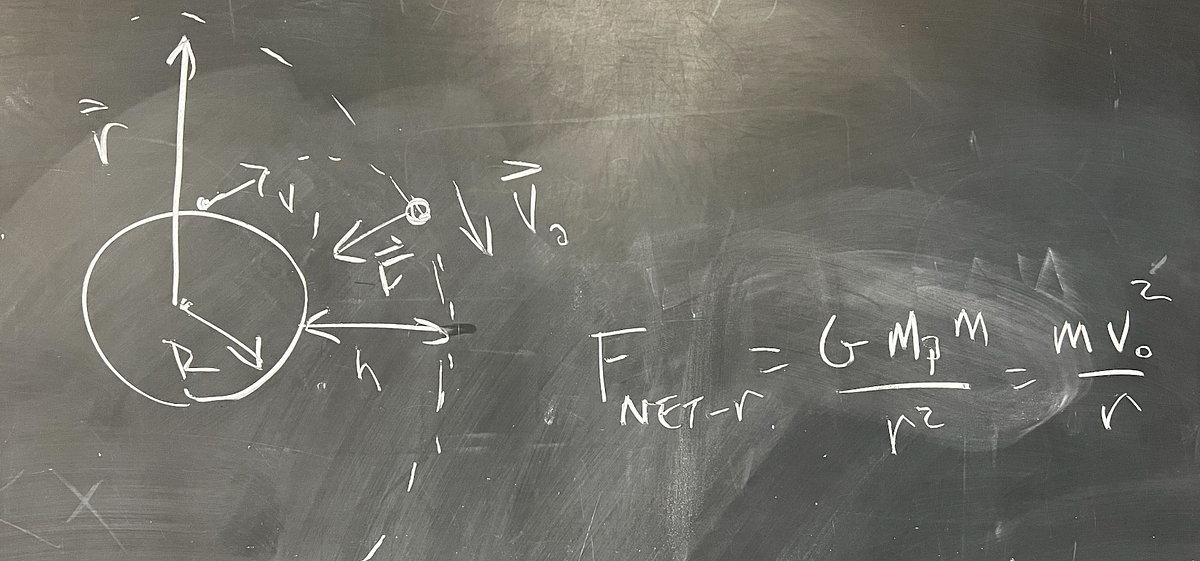 r⃗
v₁
V⃗₀
F⃗
R
h
F_NET-r = G Mₚ m / r² = m V₀² / r